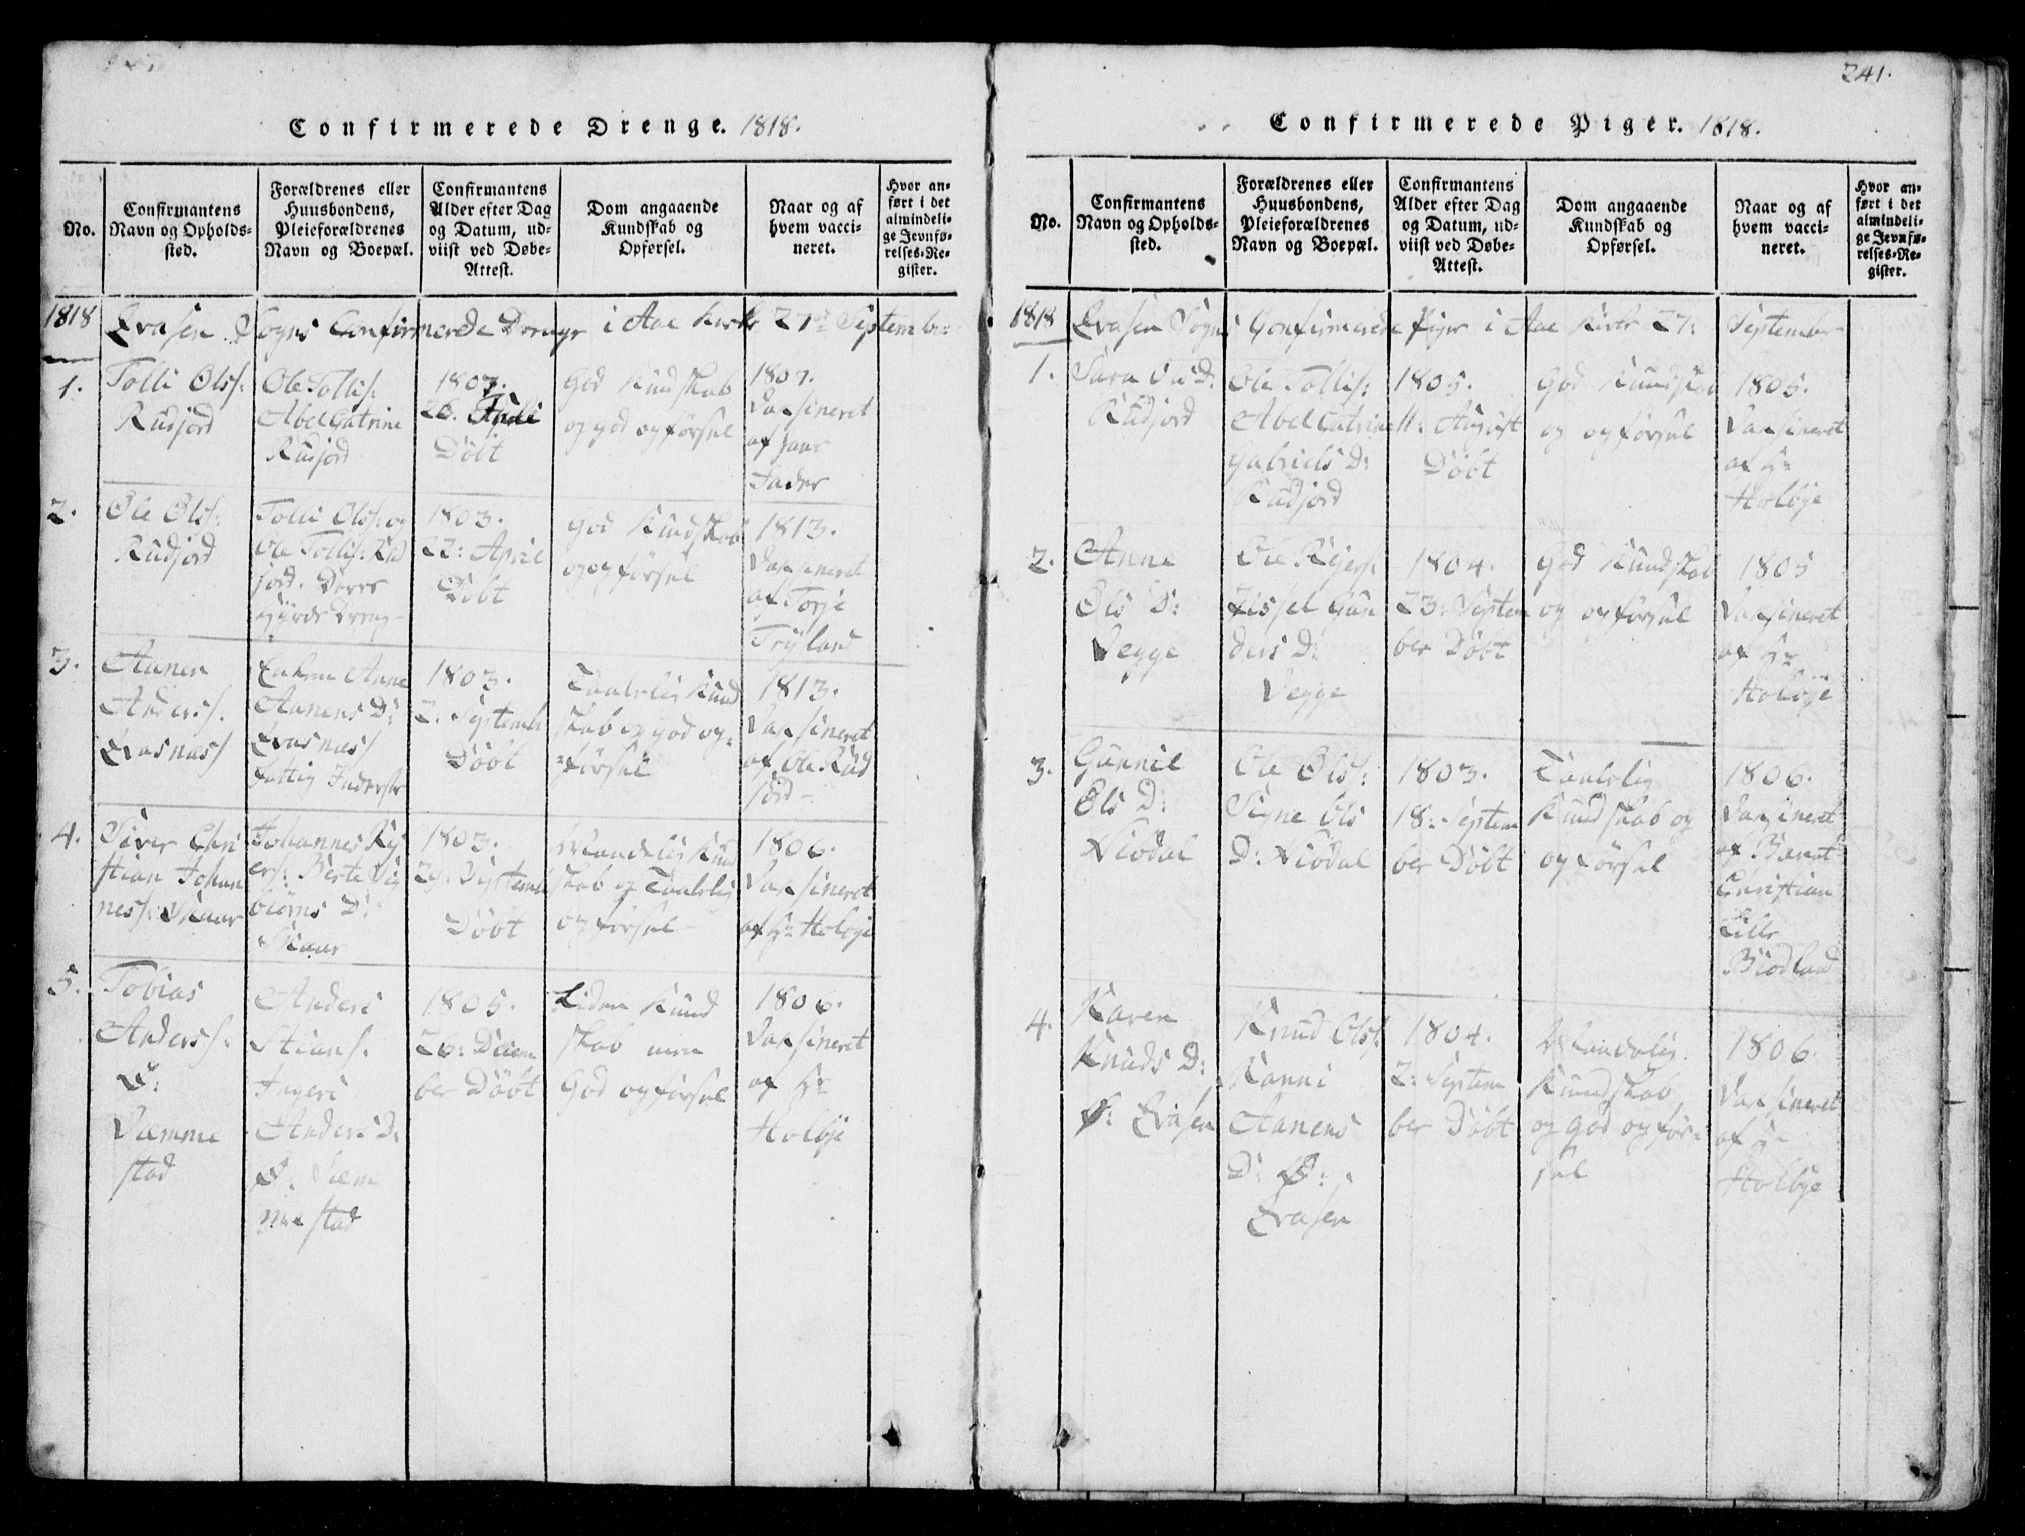 241.
Confirmerede Drenge. 1818.
No.
Confirmantens
Navn og Opholds-
sted.
Forældrenes eller
Huusbondens,
Pleieforældrenes
Navn og Boepæl.
Confirmantens
Alder efter Dag
og Datum, ud-
viist ved Døbe-
Attest.
Dom angaaende
Kundskab og
Opførsel.
Naar og af
hvem vacci-
neret.
Hvor an-
ført i det
almindeli-
ge Jevnfø-
relses-Re-
gister.
1818 Qvasen Sogns Confirmerede Drenge i Aae Kirke 27de September
1.
Tolli Ols:
Rudjord
Ole Tollis:
Abel Catrine
Rudjord
1803.
26. Juli
Döbt
God Kundskab
og god opförsel
1807.
Vaxsineret
af
2.
Ole Ols:
Rudjord
Tolli Ols: og
Ole Tollis: Rud
jord. Deres
1803.
22: April
Döbt
God Kundskab
og opförsel
1813.
Vaxsineret
af Torje
Tryland
3.
Aanen
Anders:
Qvasnes
Enken Anne
Aanens D:
Qvasnes
fattig Inderste
1803.
2: Septembr
Döbt
Taalelig Kund
skab og god op:
försel
1813.
Vaxsineret
af Ole Rud
jord
4.
Siver Chri
stian Johan
nes: Skaar
Johannes Rei
ers: Berte Sig
biörns D:
Skaar
1803.
29: Septemb
Döbt
Maadelig Kund
skab og Taalelig
opförsel
1806.
Vaxsineret
af Hr Holbye
5.
Tobias
Anders:
S:
Væmme
stad
Anders
Stians:
Ingeri
Anders D:
S: Væm
mestad
1805.
26: Decem
ber Döbt
Liden Kund
skab men
God opförsel
1806.
Vaxsineret
af Hr
Holbye
Confirmerede Piger. 1818.
No.
Confirmantens
Navn og Opholds-
sted.
Forældrenes eller
Huusbondens,
Pleieforældrenes
Navn og Boepæl.
Confirmantens
Alder efter Dag
og Datum, ud-
viist ved Døbe-
Attest.
Dom angaaende
Kundskab og
Opførsel.
Naar og af
hvem vacci-
neret.
Hvor an-
ført i det
almindeli-
ge Jevnfø-
relses-Re-
gister.
1818 Qvasen Sogns Confirmerede Piger i Aae Kirke 27: September
1.
Sara Ols D:
Rudjord
Ole Tollis:
Abel Catrine
Gabriels D:
Rudjord
1805.
11: August
Döbt
God Kundskab
og opförsel
1805.
Vaxsineret
af Hr
Holbye
2.
Anne
Ols D:
Vegge
Ole Reiers:
Zissel Gun
ders D:
Vegge
1804.
23: Septem
ber Döbt
God Kundskab
og opförsel
1805
Vaxsineret
af Hr
Holbye
3.
Gunnil
Ols D:
Niödal
Ole Ols:
Signe Ols
D: Niödal
1803.
18: Septem
ber Döbt
Taalelig
Kundskab og
opförsel
1806.
Vaxsineret
af Bernt
Christian
Lille
Biodland
4.
Karen
Knuds D:
S: Qvasen
Knud Ols:
Kanni
Aanens
D: S:
Qvasen
1804.
2: Septem
ber Döbt
Maadelig
Kundskab
og God opför:
sel
1806.
Vaxsineret
af Hr
Holbye